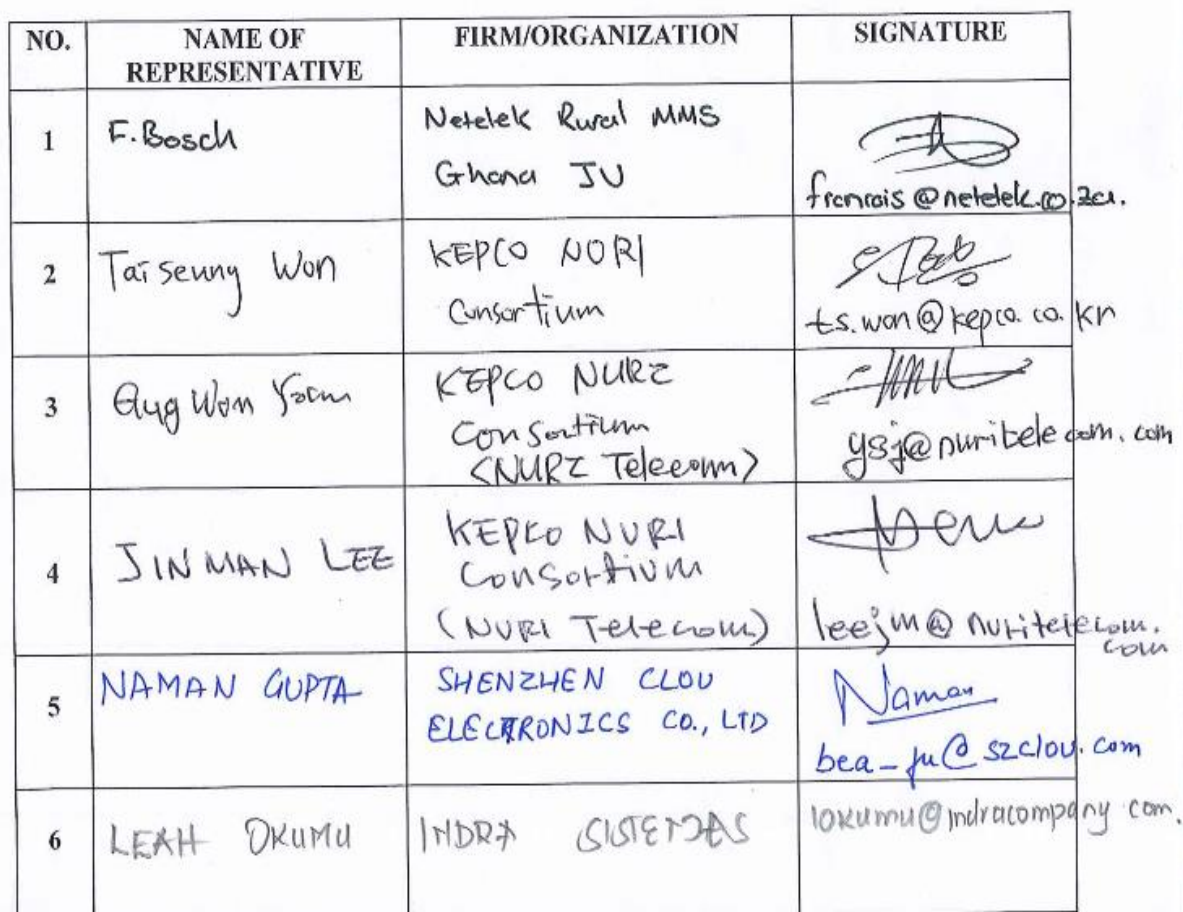 NO.
NAME OF REPRESENTATIVE
FIRM/ORGANIZATION
SIGNATURE
1
F. Bosch
Netelek Rural MMS
Ghana JV
francois@netelek.co.za.
2
Tai seung Won
KEPCO NORI
Consortium
ts.won@kepco.co.kr
3
Won
KEPCO NURI
Consortium
(NURI Telecom)
ysj@nuritelecom.com
4
JIN MAN LEE
KEPCO NURI
Consortium
(NURI Telecom)
leejm@nuritelecom.
com
5
NAMAN GUPTA
SHENZHEN CLOU
ELECTRONICS CO., LTD
Naman
bea_fu@szclou.com
6
LEAH OKUMU
INDRA SISTEMAS
lokumu@indracompany.com.